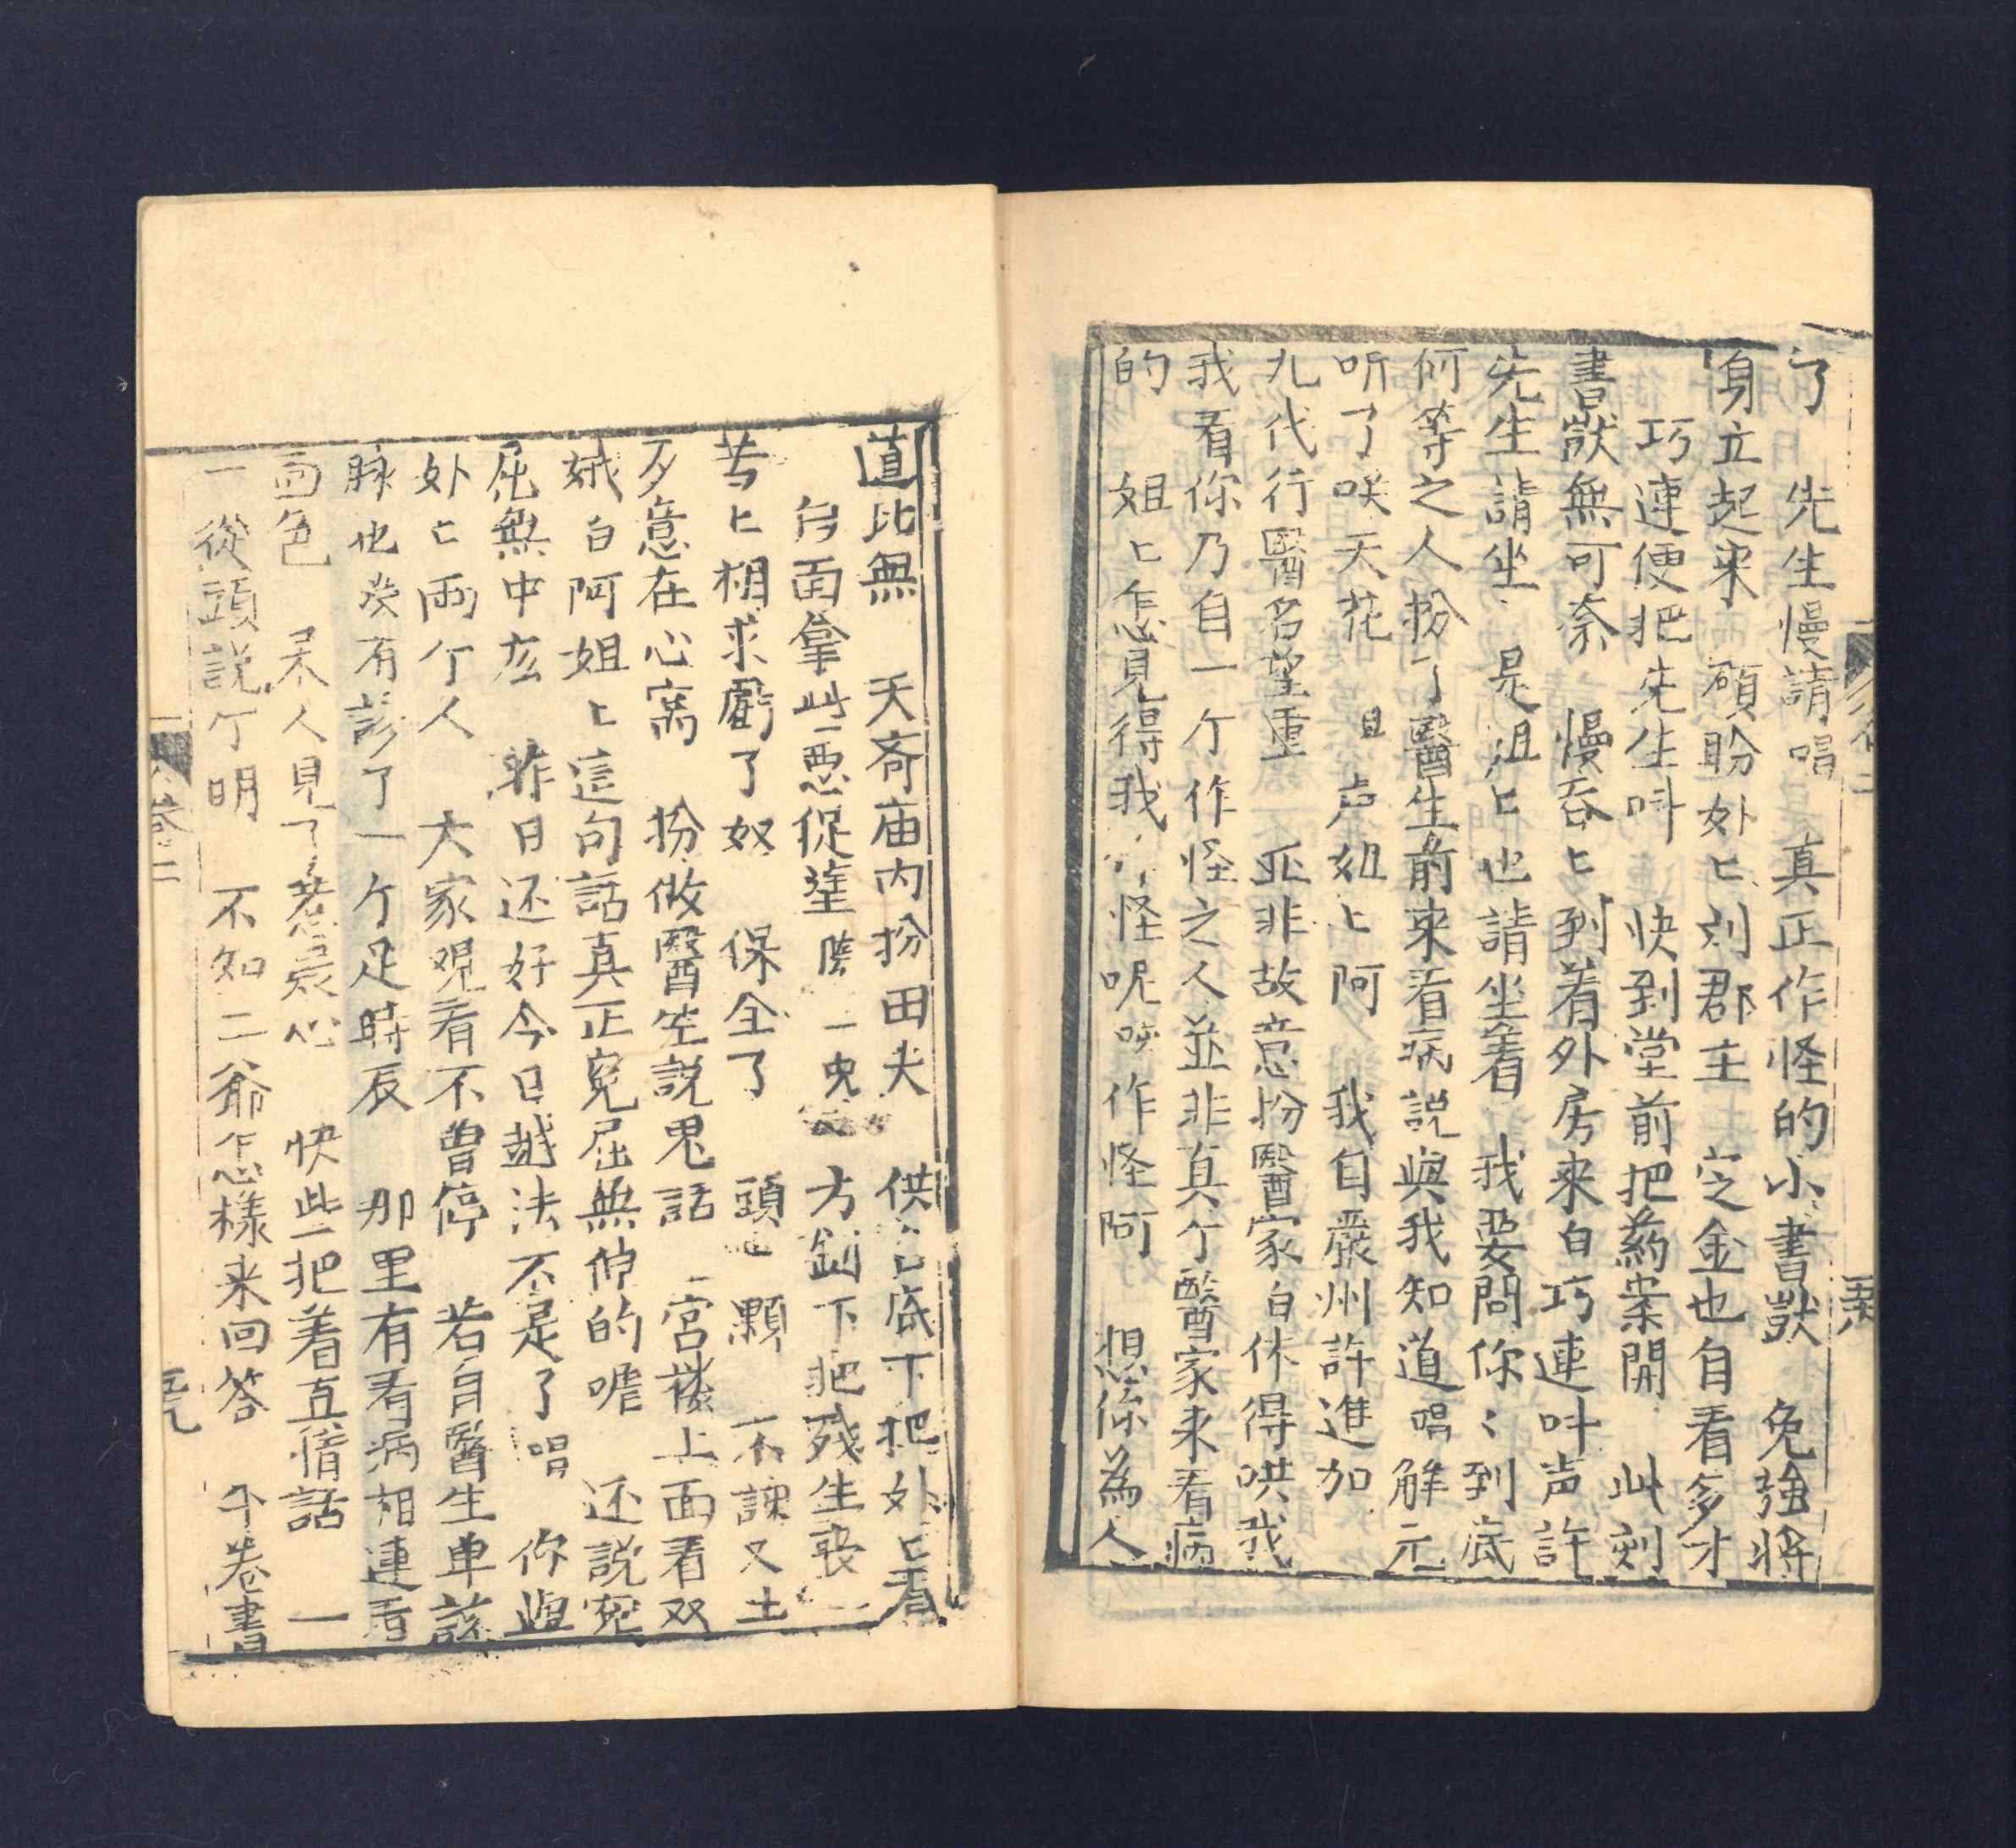 了 先生慢請唱 真正作怪的小書獃 免強將
身立起来 碩盼外匕刘郡主 空金也自看多才
巧連便把先生叫 快到堂前把葯案開 此刻
書獃無可奈 慢吞匕到着外房来白巧連叶声許
先生請坐 是姐匕也請坐着 我要問你〻到底
何等之人扮了醫生前来看病説與我知道唱解元
听了咲天花 旦 声姐匕阿 我自嚴州許進加
九代行醫名望重 並非故意扮醫家白休得哄我
我看你乃自一个作怪之人並非真个醫家来看病
的 姐匕怎見得我 怪呢 作怪阿 想你為人
卷二
道此無 天齐庙内扮田夫 供 底下把外匕看
面拿此 悪促 一 方 下把殘生喪
苦匕相求虧了奴 保全了 頭 顆 不諫又土
歹意在心窩 扮做醫生説鬼話 宫楼上面看双
娥白阿姐匕這句話真正寃屈無伸的嗟 还説寃
屈無中 昨日还好今日越法不是了唱 你與
外匕両个人 大家观看不曾停 若自醫生单該
脉也 有診了一个足時辰 那里有看病相連看
面色 呆人見了惹 心 快些把着直情話 一
一從頭説个明 不知二爺怎樣来回答 下卷書
卷二